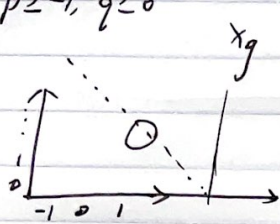 p ≥ -1, q ≥ 0
Xg
1
0
-1 0 1